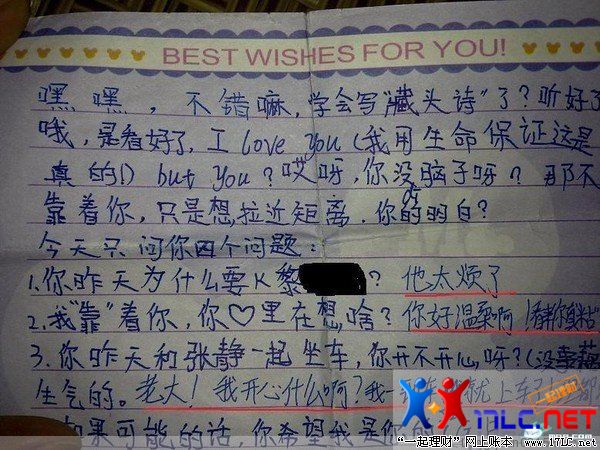 BEST WISHES FOR YOU!
嘿嘿，不错嘛，学会写“藏头诗”了？听好了
哦，是看好了，I love you（我用生命保证这是
真的!）but you？哎呀，你没脑子呀？那不
靠着你，只是想拉近距离，你的明白？
今天只问你四个问题：
1.你昨天为什么要K黎？他太烦了
2.我“靠”着你，你♡里在想啥？你好温柔啊
3.你昨天和张静一起坐车，你开不开心呀？（没
生气的。老大！我开心什么啊？我一 就上车了
如果可能的话，你希望我是你
17LC.NET
“一起理财”网上账本 www.17LC.net